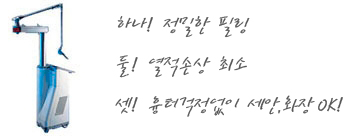 하나! 정밀한 필링
둘! 열적손상 최소
셋! 흉터걱정없이 세안,화장 OK!